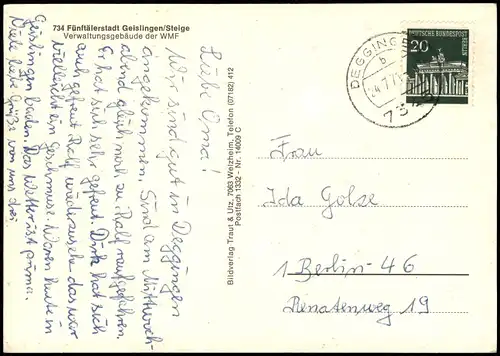 734 Fünftälerstadt Geislingen/Steige
Verwaltungsgebäude der WMF
Liebe Oma!
Wir sind gut in Deggingen
angekommen. Sind am Mittwoch-
abend gleich mal zu Ralf raufgefahren.
Er hat sich sehr gefreut. Dirk hat sich
auch gefreut Ralf wiederzusehn das war
vielleicht ein Geschmuse. Waren heute in
Geislingen baden. Das Wetter ist prima.
Viele liebe Grüße von uns drei.
Bildverlag Traut & Utz, 7063 Welzheim, Telefon (07182) 412
Postfach 1332 - Nr. 14009 C
DEUTSCHE BUNDESPOST
BERLIN
20
DEGGINGEN
b
Frau
Ida Golze
1 Berlin-46
Renatenweg 19